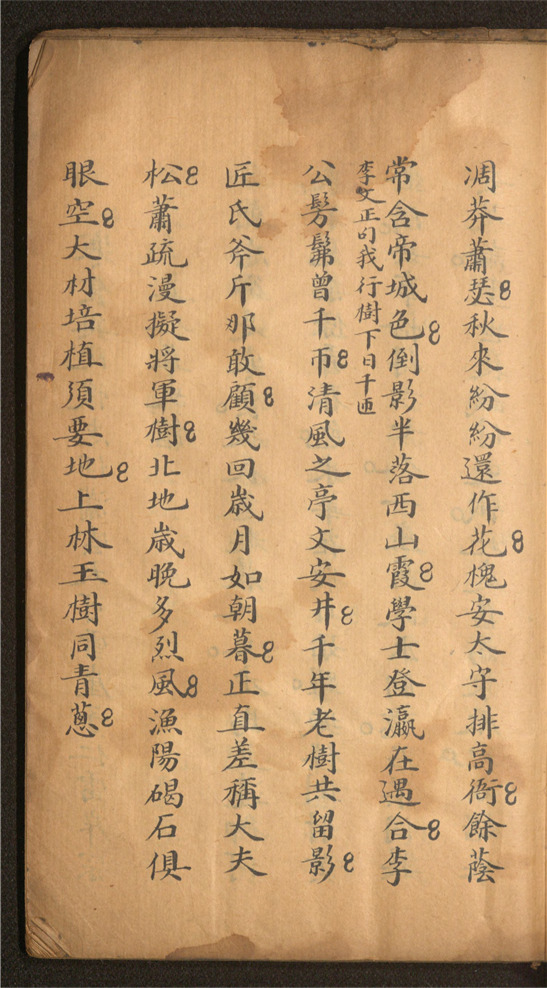 凋莽蕭瑟秋來紛紛還作花槐安太守排高衙餘蔭
常含帝城色倒影半落西山霞學士登瀛在遇合李
李文正句我行樹下日千匝
公髣髴曾千帀清風之亭文安井千年老樹共留影
匠氏斧斤那敢顧幾回歲月如朝暮正直差稱大夫
松蕭疏漫擬將軍樹北地歲晚多烈風漁陽碣石俱
眼空大材培植須要地上林玉樹同青蔥